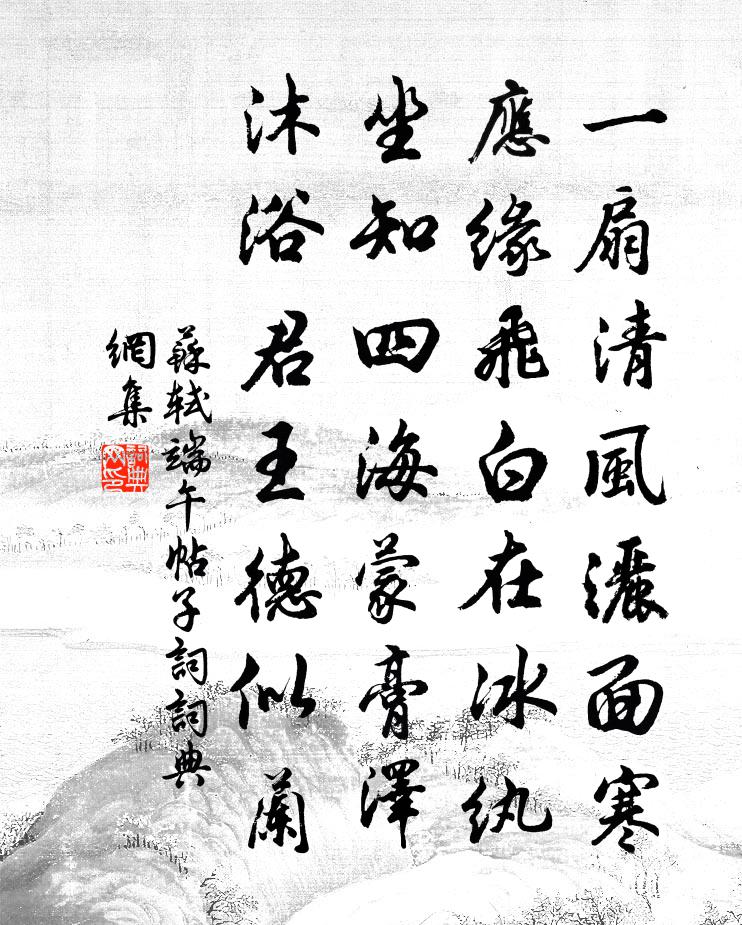 一扇清風灑面寒
應緣飛白在冰紈
坐知四海蒙膏澤
沐浴君王德似蘭
蘇軾端午帖子詞詞典
網集
詞典
网印